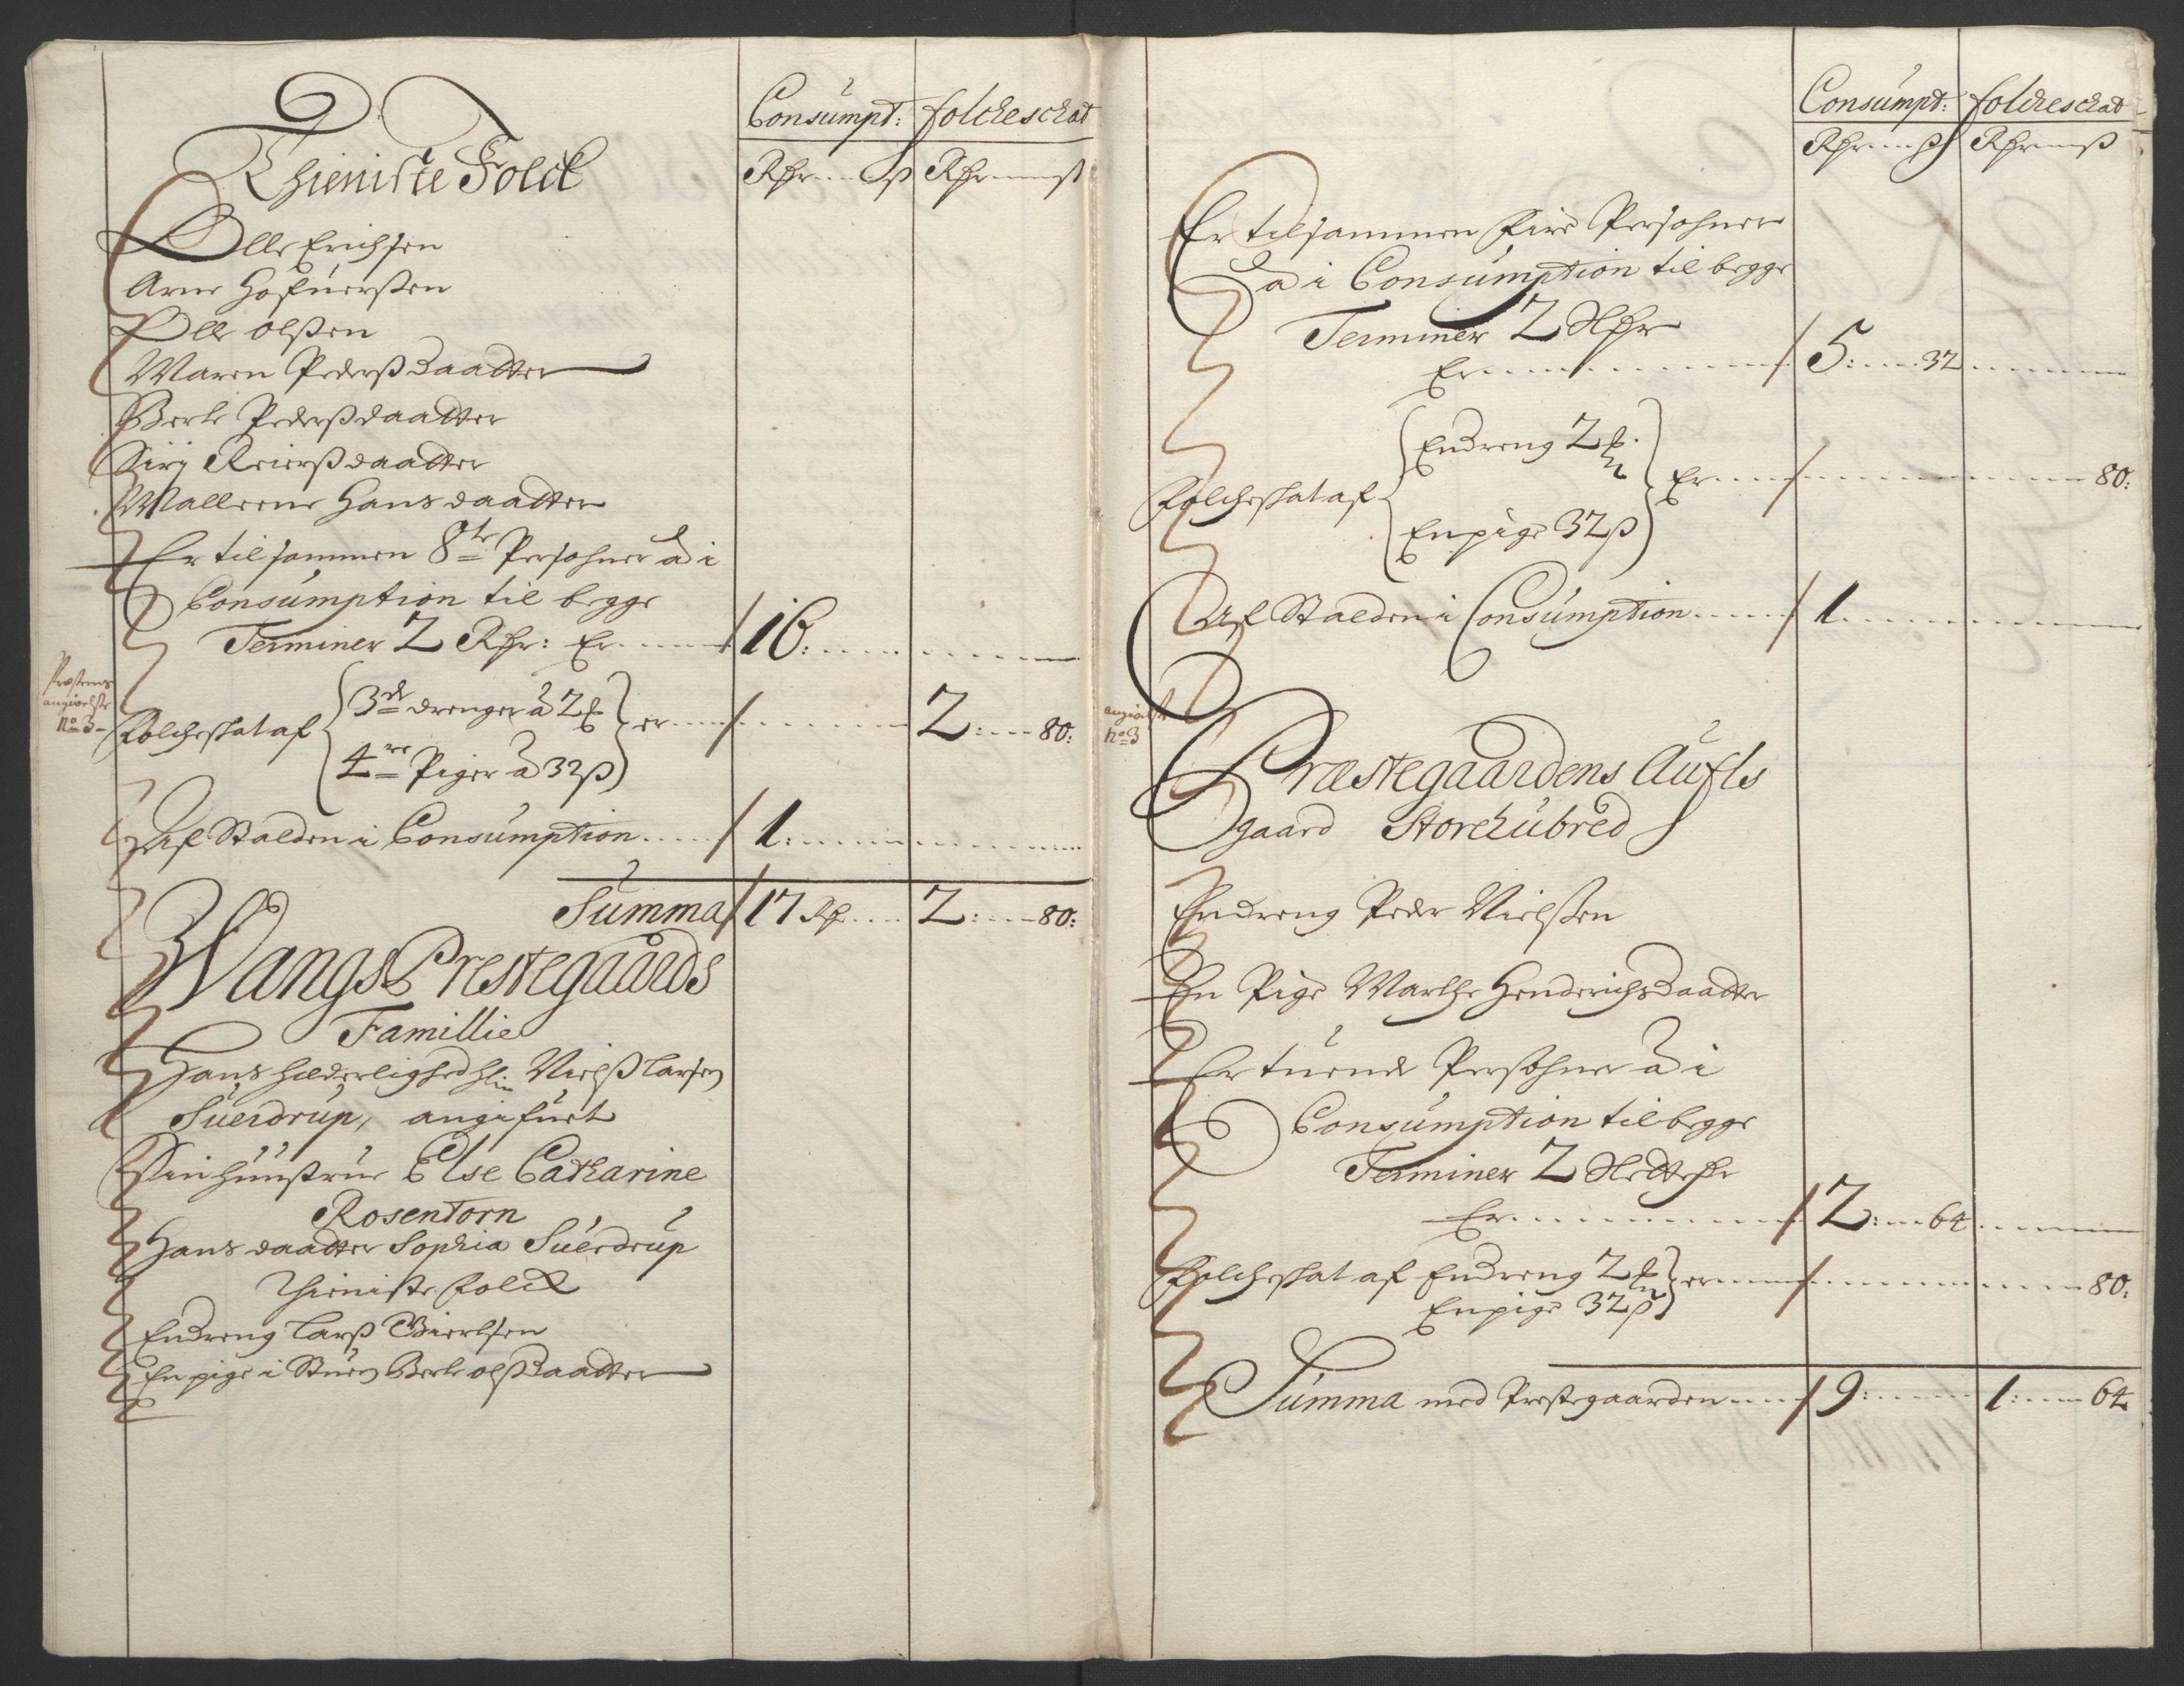 Consumpt: folckeschat
Rdr ß Rdr ß
Thieniste Folck
Olle Erichsen
Arne Hofuerßen
Olle Olßen
Maren Pederßdaatter
Berte Pederßdaatter
Siri Reierßdaatter
Malleene Hansdaatter
Er tilsammen 8te Persohner â i
Consumption til begge
Terminer 2 Rdr: Er 16:
Præstens
angivelse
No 3
Folcheskat af
3de drenger â 2
4re Piger â 32 ß
er 2: 80:
Af Stalden i Consumption 1:
Summa 17 Rdr 2: 80:
Wangs Prestegaards
Famillie
Hans Hæderlighed Hr Nielß Larsen
Suerdrup, angifuet
Sin hùustrue Else Catharine
Rosentorn
Hans daatter Sophia Suerdrup
Thieniste Folck
En dreng Larß
En pige i Stuen Berte olßdaatter
Consumpt: folckeschat
Rdr ß Rdr ß
Er tilsammen Fire Persohner
â i Consumption til begge
Terminer 2 Sldr
Er 5: 32
Folcheskat af
En dreng 2
En pige 32 ß
Er 80:
Af Stalden i Consumption 1
angivelse
No 3
Præstegaardens Aufls
gaard Storehubred
En dreng Peder Nielßen
En Pige Marthe Hendrichsdaatter
Er tuende Persohner â i
Consumption til begge
Terminer 2 Slettedr
Er 2: 64
Folcheskat af En dreng 2
En pige 32 ß
er 80:
Summa med Prestegaarden 9: 1: 64